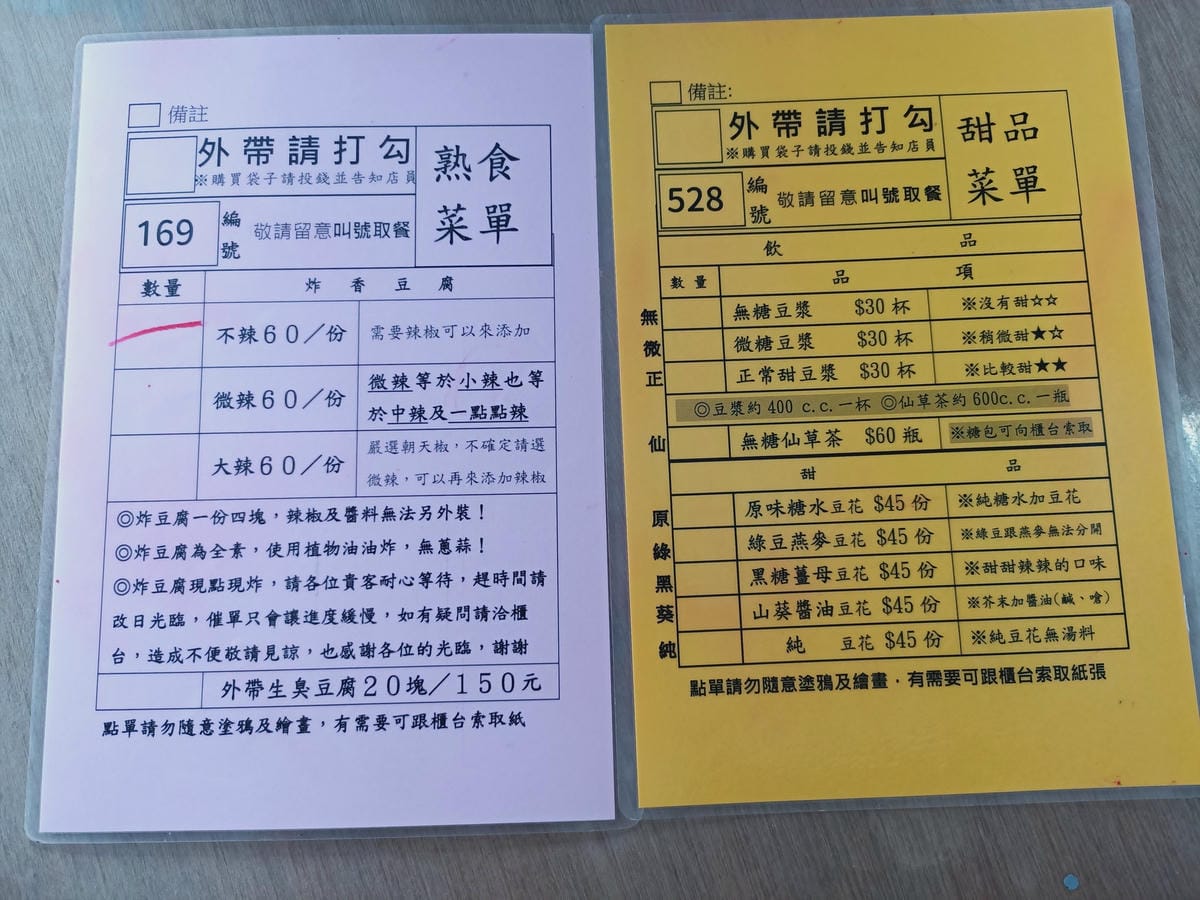 備註
外帶請打勾
※購買袋子請投錢並告知店員
熟食
菜單
169
編號
敬請留意叫號取餐
數量 炸香豆腐
不辣60／份 需要辣椒可以來添加
微辣60／份 微辣等於小辣也等
於中辣及一點點辣
大辣60／份 嚴選朝天椒，不確定請選
微辣，可以再來添加辣椒
◎炸豆腐一份四塊，辣椒及醬料無法另外裝！
◎炸豆腐為全素，使用植物油油炸，無蔥蒜！
◎炸豆腐現點現炸，請各位貴客耐心等待，趕時間請
改日光臨，催單只會讓進度緩慢，如有疑問請洽櫃
台，造成不便敬請見諒，也感謝各位的光臨，謝謝
外帶生臭豆腐20塊／150元
點單請勿隨意塗鴉及繪畫，有需要可跟櫃台索取紙
備註:
外帶請打勾
※購買袋子請投錢並告知店員
甜品
菜單
528
編號
敬請留意叫號取餐
飲品
數量 品項
無 無糖豆漿 $30 杯 ※沒有甜☆☆
微 微糖豆漿 $30 杯 ※稍微甜★☆
正 正常甜豆漿 $30 杯 ※比較甜★★
◎豆漿約 400 c.c.一杯 ◎仙草茶約600c.c.一瓶
仙 無糖仙草茶 $60 瓶 ※糖包可向櫃台索取
甜品
原 原味糖水豆花 $45 份 ※純糖水加豆花
綠 綠豆燕麥豆花 $45 份 ※綠豆跟燕麥無法分開
黑 黑糖薑母豆花 $45 份 ※甜甜辣辣的口味
葵 山葵醬油豆花 $45 份 ※芥末加醬油(鹹、嗆)
純 純 豆花 $45 份 ※純豆花無湯料
點單請勿隨意塗鴉及繪畫．有需要可跟櫃台索取紙張